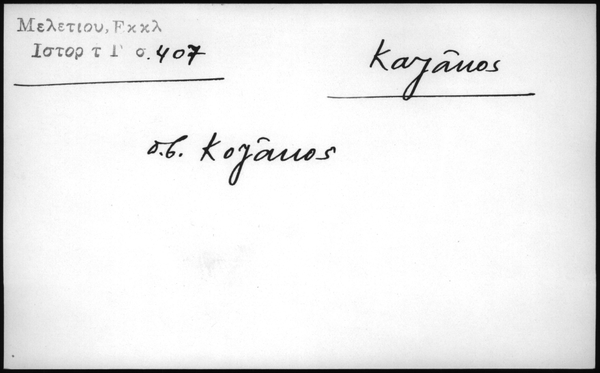 Μελετιου, Εκκλ
Ιστορ τ Γ σ. 407
Καζᾶκος
σ.β. Κοζᾶκος